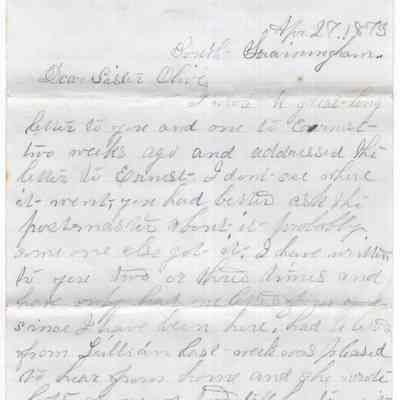 Apr 27, 1873
South Framingham.
Dear Sister Olive,
I wrote a great long
letter to you and one to Earnest
two weeks ago and addressed the
letter to Ernest. I dont see where
it went, you had better ask the
postmaster about it probably
some one else got it. I have written
to you two or three times and
have only had one letter from you
since I have been here, had a letter
from Lillian last week was pleased
to hear from home and she wrote